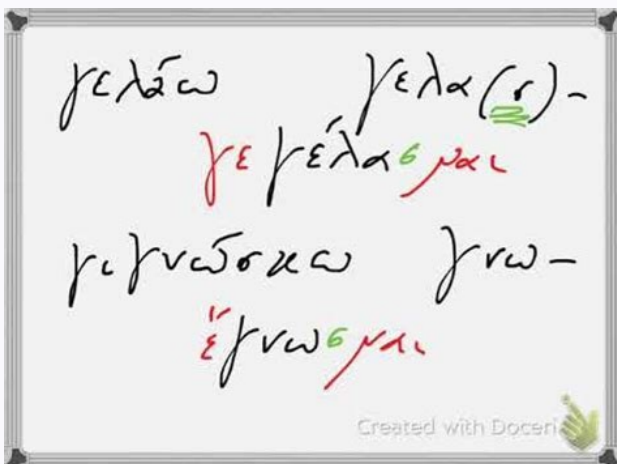 γελάω γελα(σ)-
γεγέλασμαι
γιγνώσκω γνω-
ἔγνωσμαι
Created with Doceri